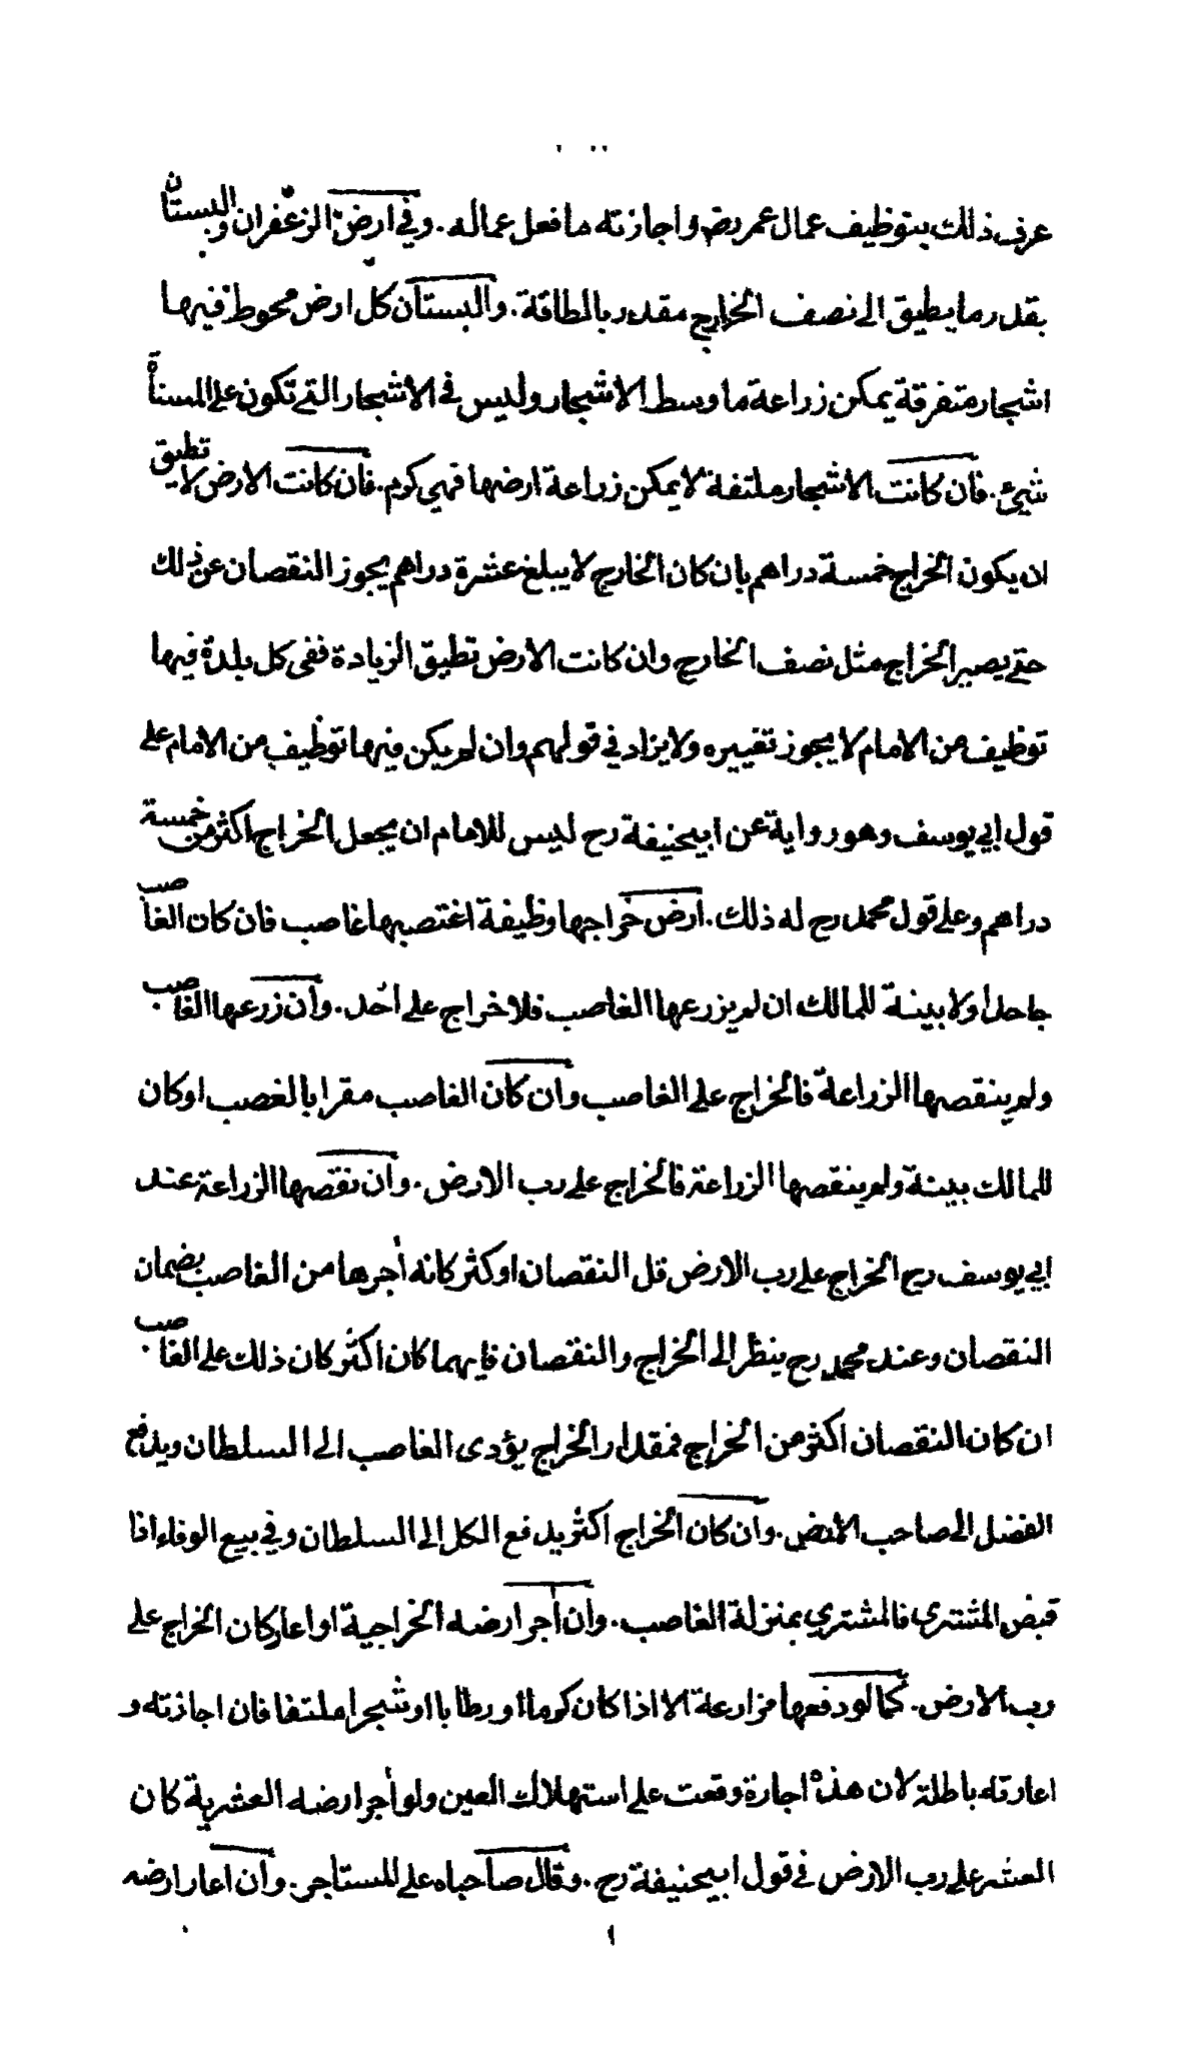 عرف ذلك بتوظيف عمال عمر رض واجازته ما فعل عماله . وفي ارض الزعفران والبستان
بقدر ما يطيق الى نصف الخارج مقدر بالطاقة . والبستان كل ارض محوط فيها
اشجار متفرقة يمكن زراعة ما وسط الاشجار وليس في الاشجار التي تكون على المسناة
شيئ . فان كانت الاشجار ملتفة لا يمكن زراعة ارضها فهي كرم . فان كانت الارض لا تطيق
ان يكون الخراج خمسة دراهم بان كان الخارج لا يبلغ عشرة دراهم يجوز النقصان عن ذلك
حتى يصير الخراج مثل نصف الخارج وان كانت الارض تطيق الزيادة ففى كل بلدة فيها
توظيف من الامام لا يجوز تغييره ولا يزاد في قولهم وان لم يكن فيها توظيف من الامام على
قول ابي يوسف وهو رواية عن ابيحنيفة رح ليس للامام ان يجعل الخراج اكثر من خمسة
دراهم وعلى قول محمد رح له ذلك . ارض خراجها وظيفة اغتصبها غاصب فان كان الغاصب
جاحدا ولا بينة للمالك ان لم يزرعها الغاصب فلا خراج على احد . وان زرعها الغاصب
ولم ينقصها الزراعة فالخراج على الغاصب وان كان الغاصب مقرا بالغصب او كان
للمالك بينة ولم ينقصها الزراعة فالخراج على رب الارض . وان نقصها الزراعة عند
ابي يوسف رح الخراج على رب الارض قل النقصان او كثر كانه أجرها من الغاصب بضمان
النقصان وعند محمد رح ينظر الى الخراج والنقصان فايهما كان اكثر كان ذلك على الغاصب
ان كان النقصان اكثر من الخراج فمقدار الخراج يؤدى الغاصب الى السلطان ويدفع
الفضل الى صاحب الارض . وان كان الخراج اكثر يدفع الكل الى السلطان وفي بيع الوفاء اذا
قبض المشترى فالمشتري بمنزلة الغاصب . وان أجر ارضه الخراجية او اعار كان الخراج على
رب الارض . كما لو دفعها مزارعة الا اذا كان كرما او رطابا او شجرا ملتفا فان اجازته و
اعارته باطلة لان هذه اجارة وقعت على استهلاك العين ولو أجر ارضه العشرية كان
العشر على رب الارض في قول ابيحنيفة رح . وقال صاحباه على المستاجر . وان اعار ارضه